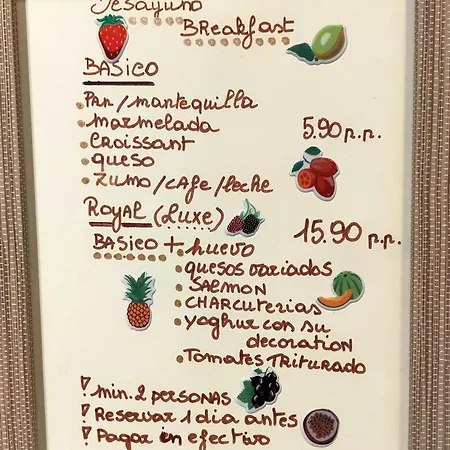 Desayuno
BReakfast
BASICO
PAN/mantequilla
marmelada
CRoissant
queso
Zumo/cafe/leche
5.90 p.p.
ROYAL (Luxe)
15.90 p.p.
BASICO + huevo
quesos variados
SALMON
CHARCUTERIAS
yoghur con su
decoration
TOMATES TRITURADO
! min. 2 PERSONAS
! Reservar 1 dia antes
! Pagar in efectivo